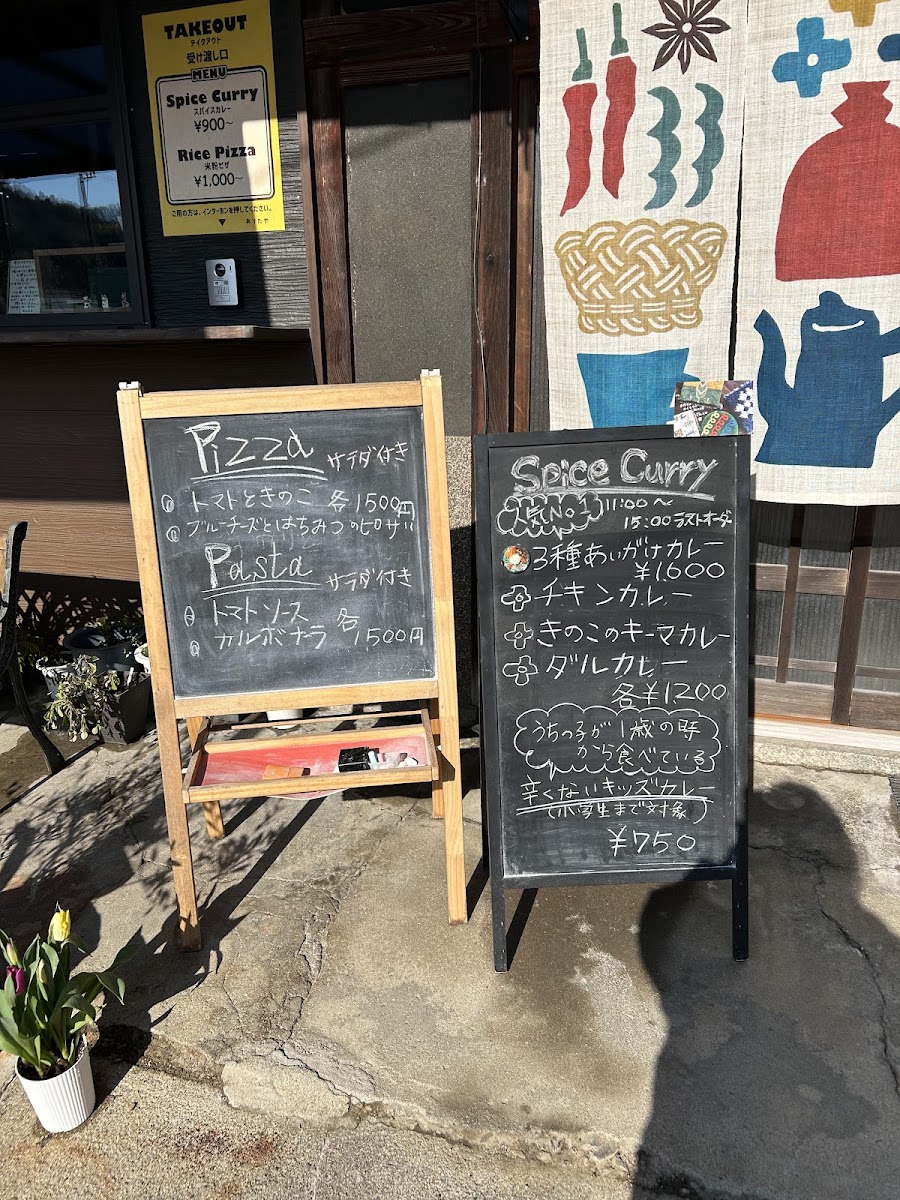 TAKEOUT
テイクアウト
受け渡し口
MENU
Spice Curry
スパイスカレー
¥900~
Rice Pizza
米粉ピザ
¥1,000~
ご用の方は、インターホンを押してください。
▼ あすたや
Pizza サラダ付き
トマトときのこ 各1500円
ブルーチーズとはちみつのピザ
Pasta サラダ付き
トマトソース
カルボナーラ 各1500円
Spice Curry
人気No.1 11:00~
15:00ラストオーダー
3種あいがけカレー
¥1.600
チキンカレー
きのこのキーマカレー
ダルカレー
各¥1.200
うちの子が1歳の時
から食べている
辛くないキッズカレー
(小学生まで対象)
¥750